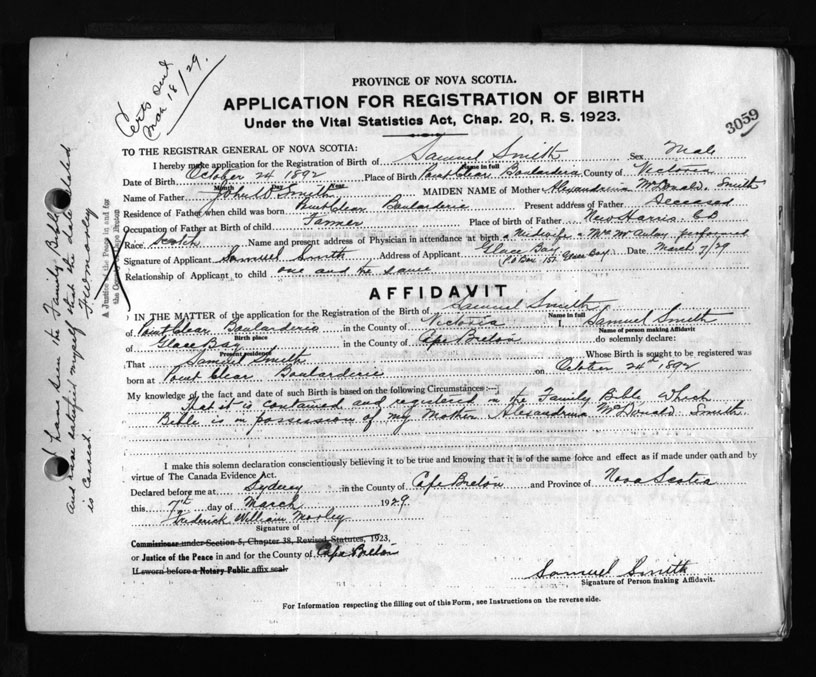 Certs sent
Mar 18/29.
3059
PROVINCE OF NOVA SCOTIA.
APPLICATION FOR REGISTRATION OF BIRTH
Under the Vital Statistics Act, Chap. 20, R. S. 1923.
TO THE REGISTRAR GENERAL OF NOVA SCOTIA:
I hereby make application for the Registration of Birth of Samuel Smith Sex Male
Name in full
Date of Birth October 24 1892 Place of Birth Point Clear Boularderie County of Victoria
Month Day Year
Name of Father John Smith MAIDEN NAME of Mother Alexandrina McDonald Smith
Residence of Father when child was born Point Clear Boularderie Present address of Father Deceased
Occupation of Father at Birth of child Farmer Place of birth of Father New Harris C B
Race Scotch Name and present address of Physician in attendance at birth a Midwife a Mrs McAulay performed
Signature of Applicant Samuel Smith Address of Applicant Glace Bay Date March 7/29
(P.O Box 151 Glace Bay)
Relationship of Applicant to child one and the same
AFFIDAVIT
IN THE MATTER of the application for the Registration of the Birth of Samuel Smith
Name in full
of Point Clear Boularderie in the County of Victoria I, Samuel Smith
Birth place Name of person making Affidavit
of Glace Bay in the County of Cape Breton do solemnly declare:
Present residence
That Samuel Smith Whose Birth is sought to be registered was
born at Point Clear Boularderie on October 24th 1892
My knowledge of the fact and date of such Birth is based on the following Circumstances :—
That it is contained and registered in the Family Bible, Which
Bible is in possession of my Mother Alexandrina McDonald Smith.
I make this solemn declaration conscientiously believing it to be true and knowing that it is of the same force and effect as if made under oath and by
virtue of The Canada Evidence Act.
Declared before me at Sydney in the County of Cape Breton and Province of Nova Scotia
this 7th day of March 1929
Frederick William Morley
Signature of
Commissioner under Section 5, Chapter 38, Revised Statutes, 1923,
or Justice of the Peace in and for the County of Cape Breton
If sworn before a Notary Public affix seal
Samuel Smith
Signature of Person making Affidavit.
For Information respecting the filling out of this Form, see Instructions on the reverse side.
I have seen the Family Bible
and have satisfied myself that the date stated
is correct.
Fredwmorley
A Justice of the Peace in and for
the County of Cape Breton